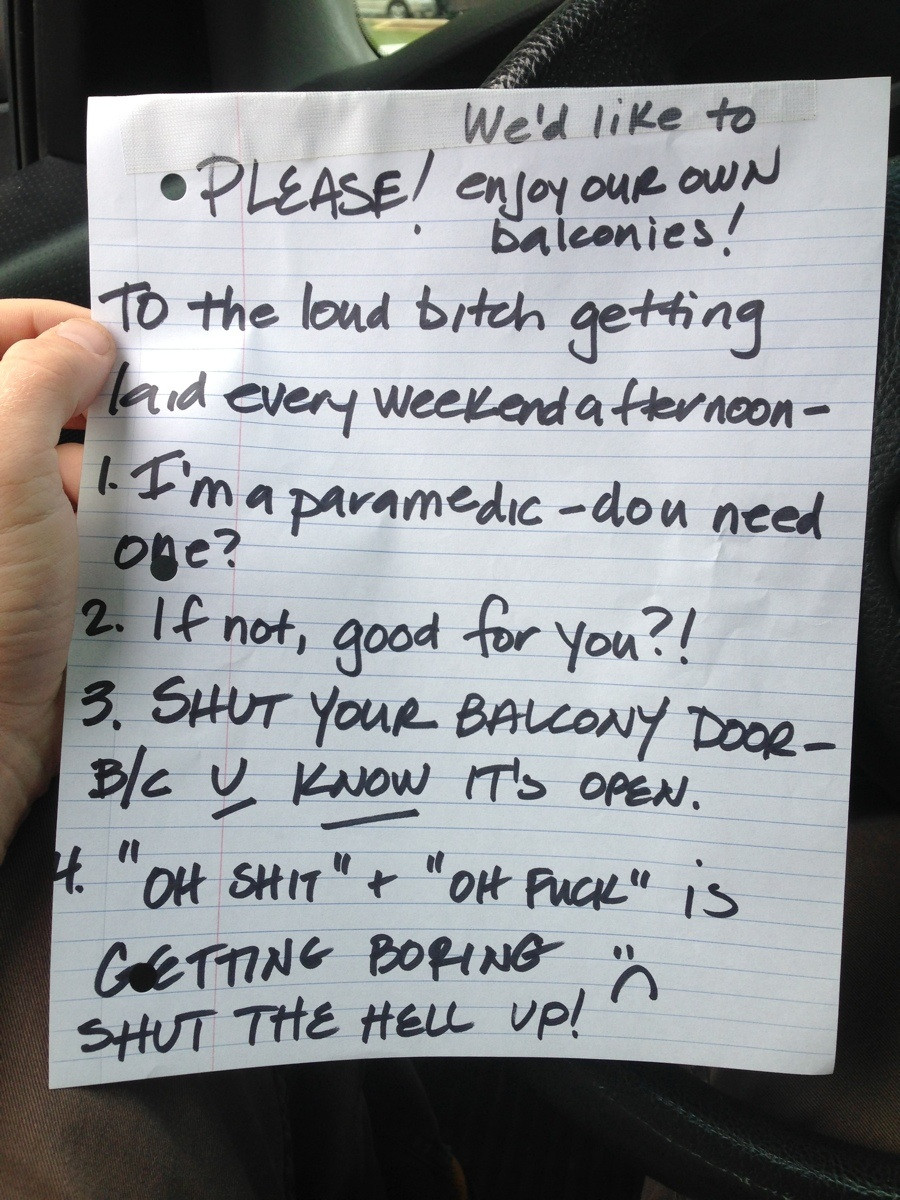 We'd like to
PLEASE! enjoy our own
balconies!
To the loud bitch getting
laid every weekend afternoon-
1. I'm a paramedic - do u need
one?
2. If not, good for you?!
3. SHUT YOUR BALCONY DOOR-
B/C U KNOW IT'S OPEN.
4. "OH SHIT" + "OH FUCK" is
GETTING BORING :(
SHUT THE HELL UP!